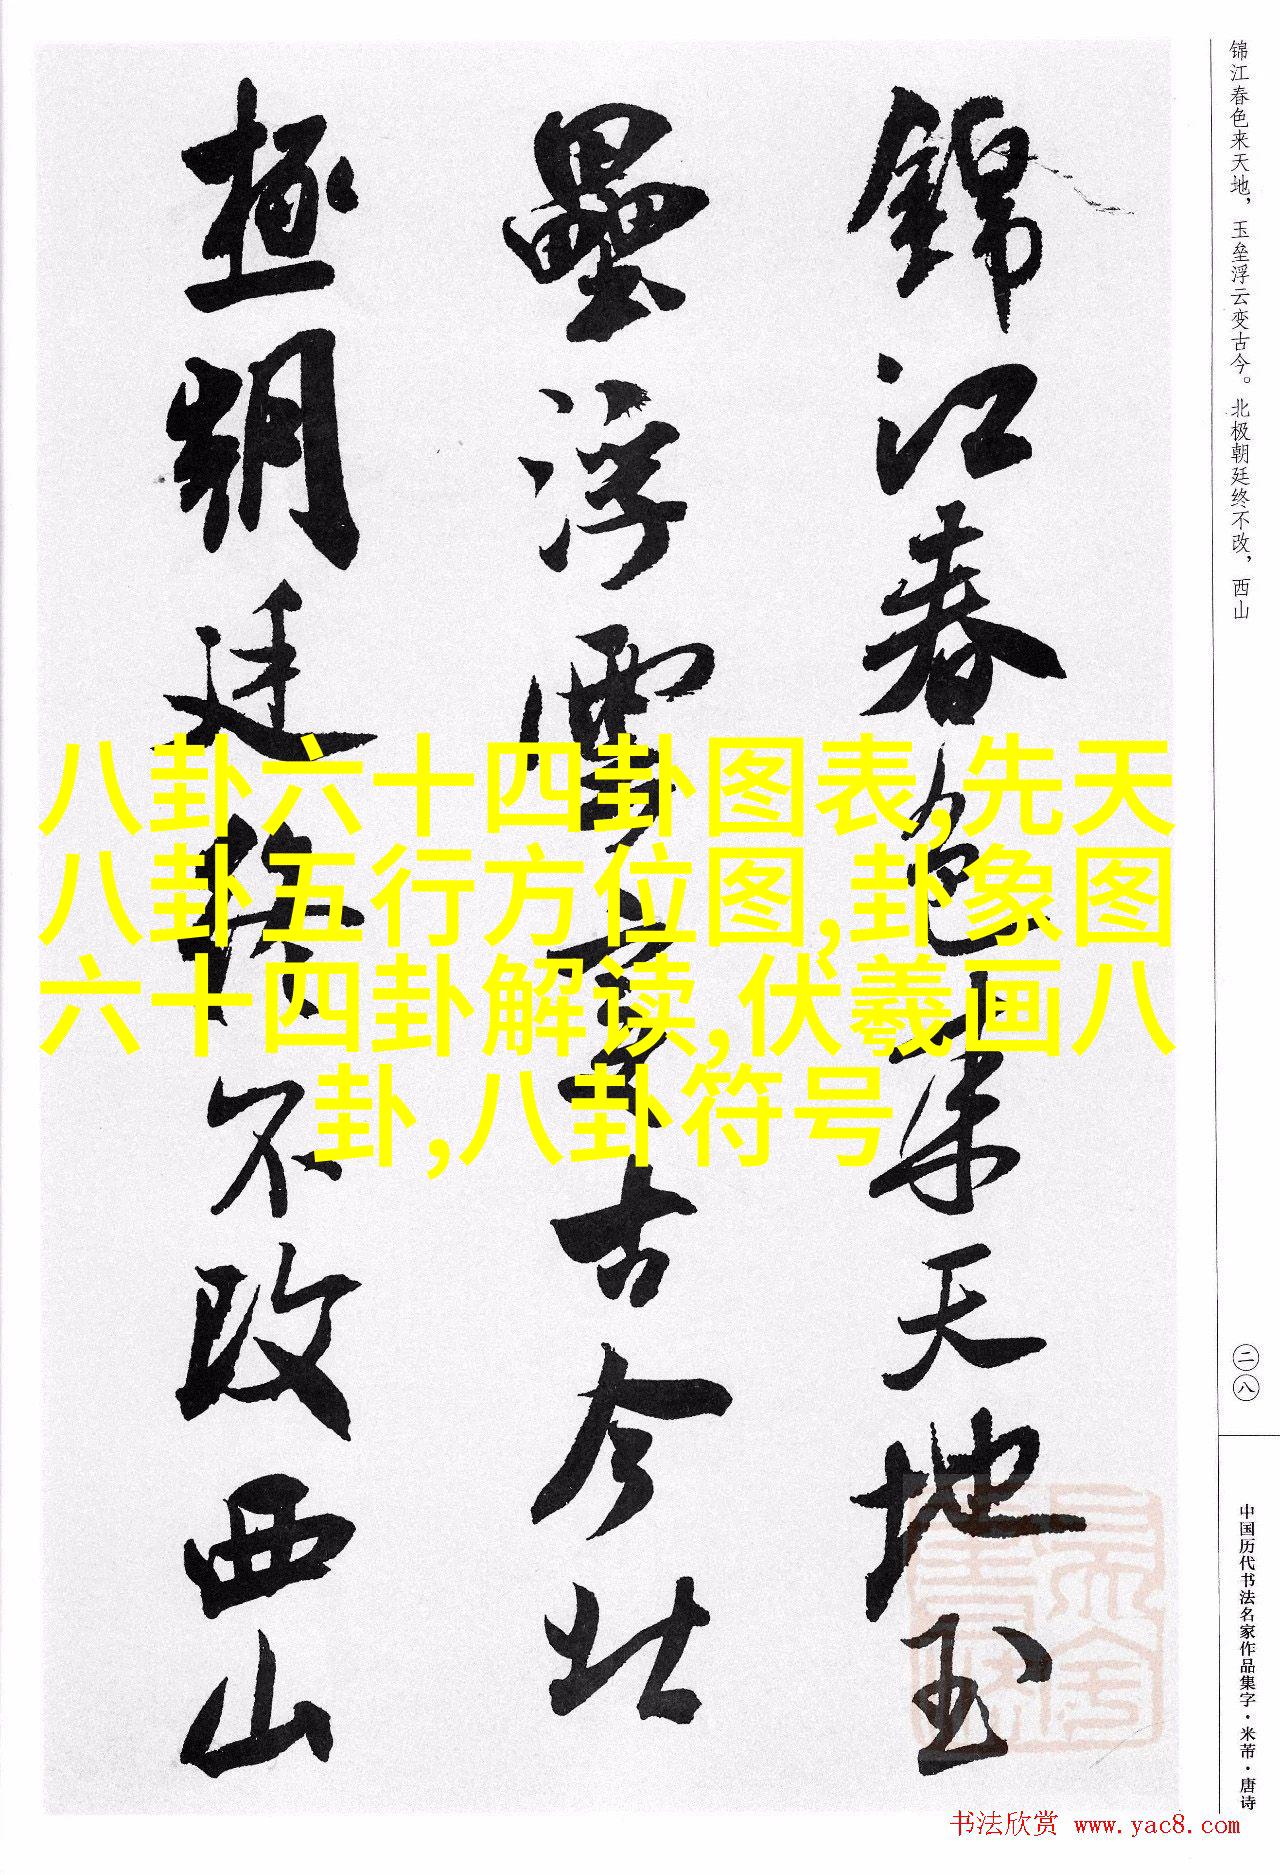 锦江春色来天地，玉垒浮云变古今。北极朝廷终不改，西山
錦江春色来天地玉
壘浮雲变古今北
極朝廷终不改西山
八卦六十四卦图表,先天
八卦五行方位图,卦象图
六十四卦解读,伏羲画八
卦,八卦符号
二八
中国历代书法名家作品集字·米芾·唐诗
书法欣赏 www.yac8.com